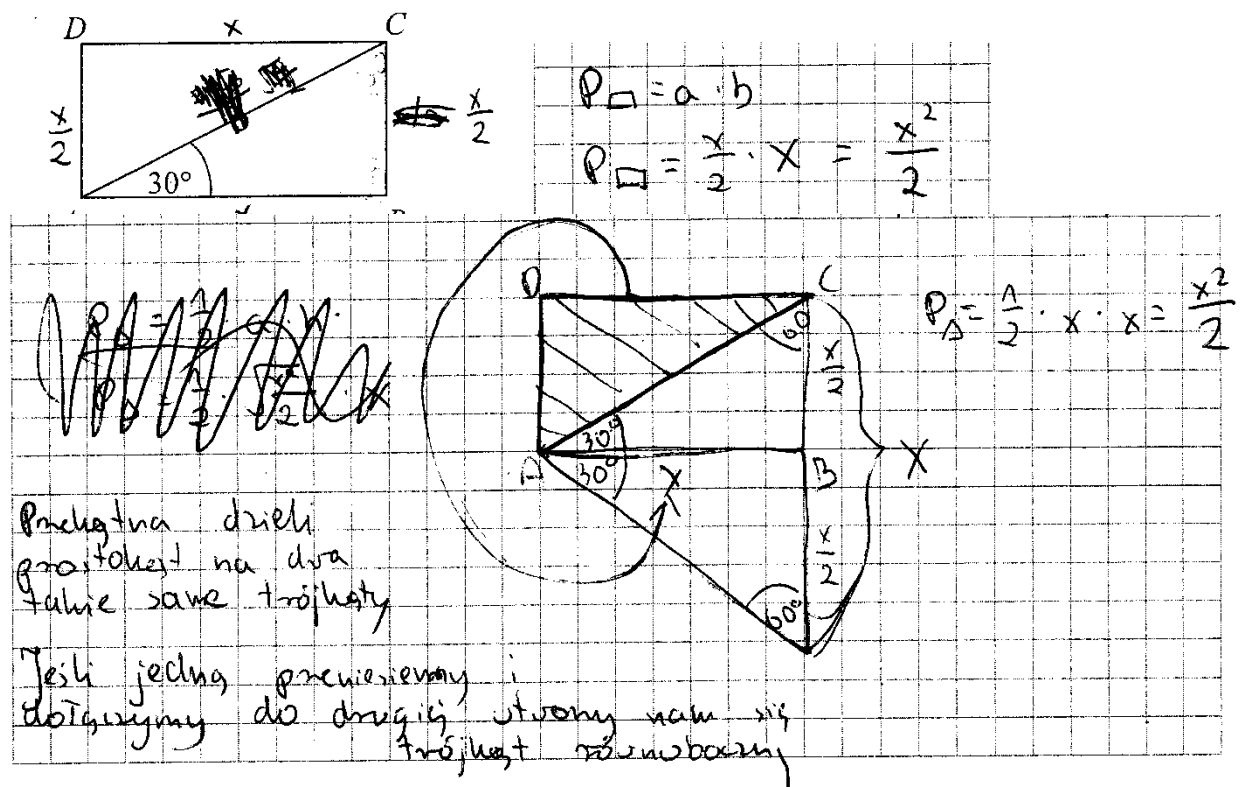 D x C
x/2
x/2
30°
P▭ = a · b
P▭ = x/2 · x = x²/2
D C
60
P△ = 1/2 · x · x = x²/2
x/2
30°
A 30° x B x
x/2
60°
Przekątna dzieli
prostokąt na dwa
takie same trójkąty
Jeśli jedną przeniesiemy i
dołączymy do drugiej utworzy nam się
trójkąt równoboczny